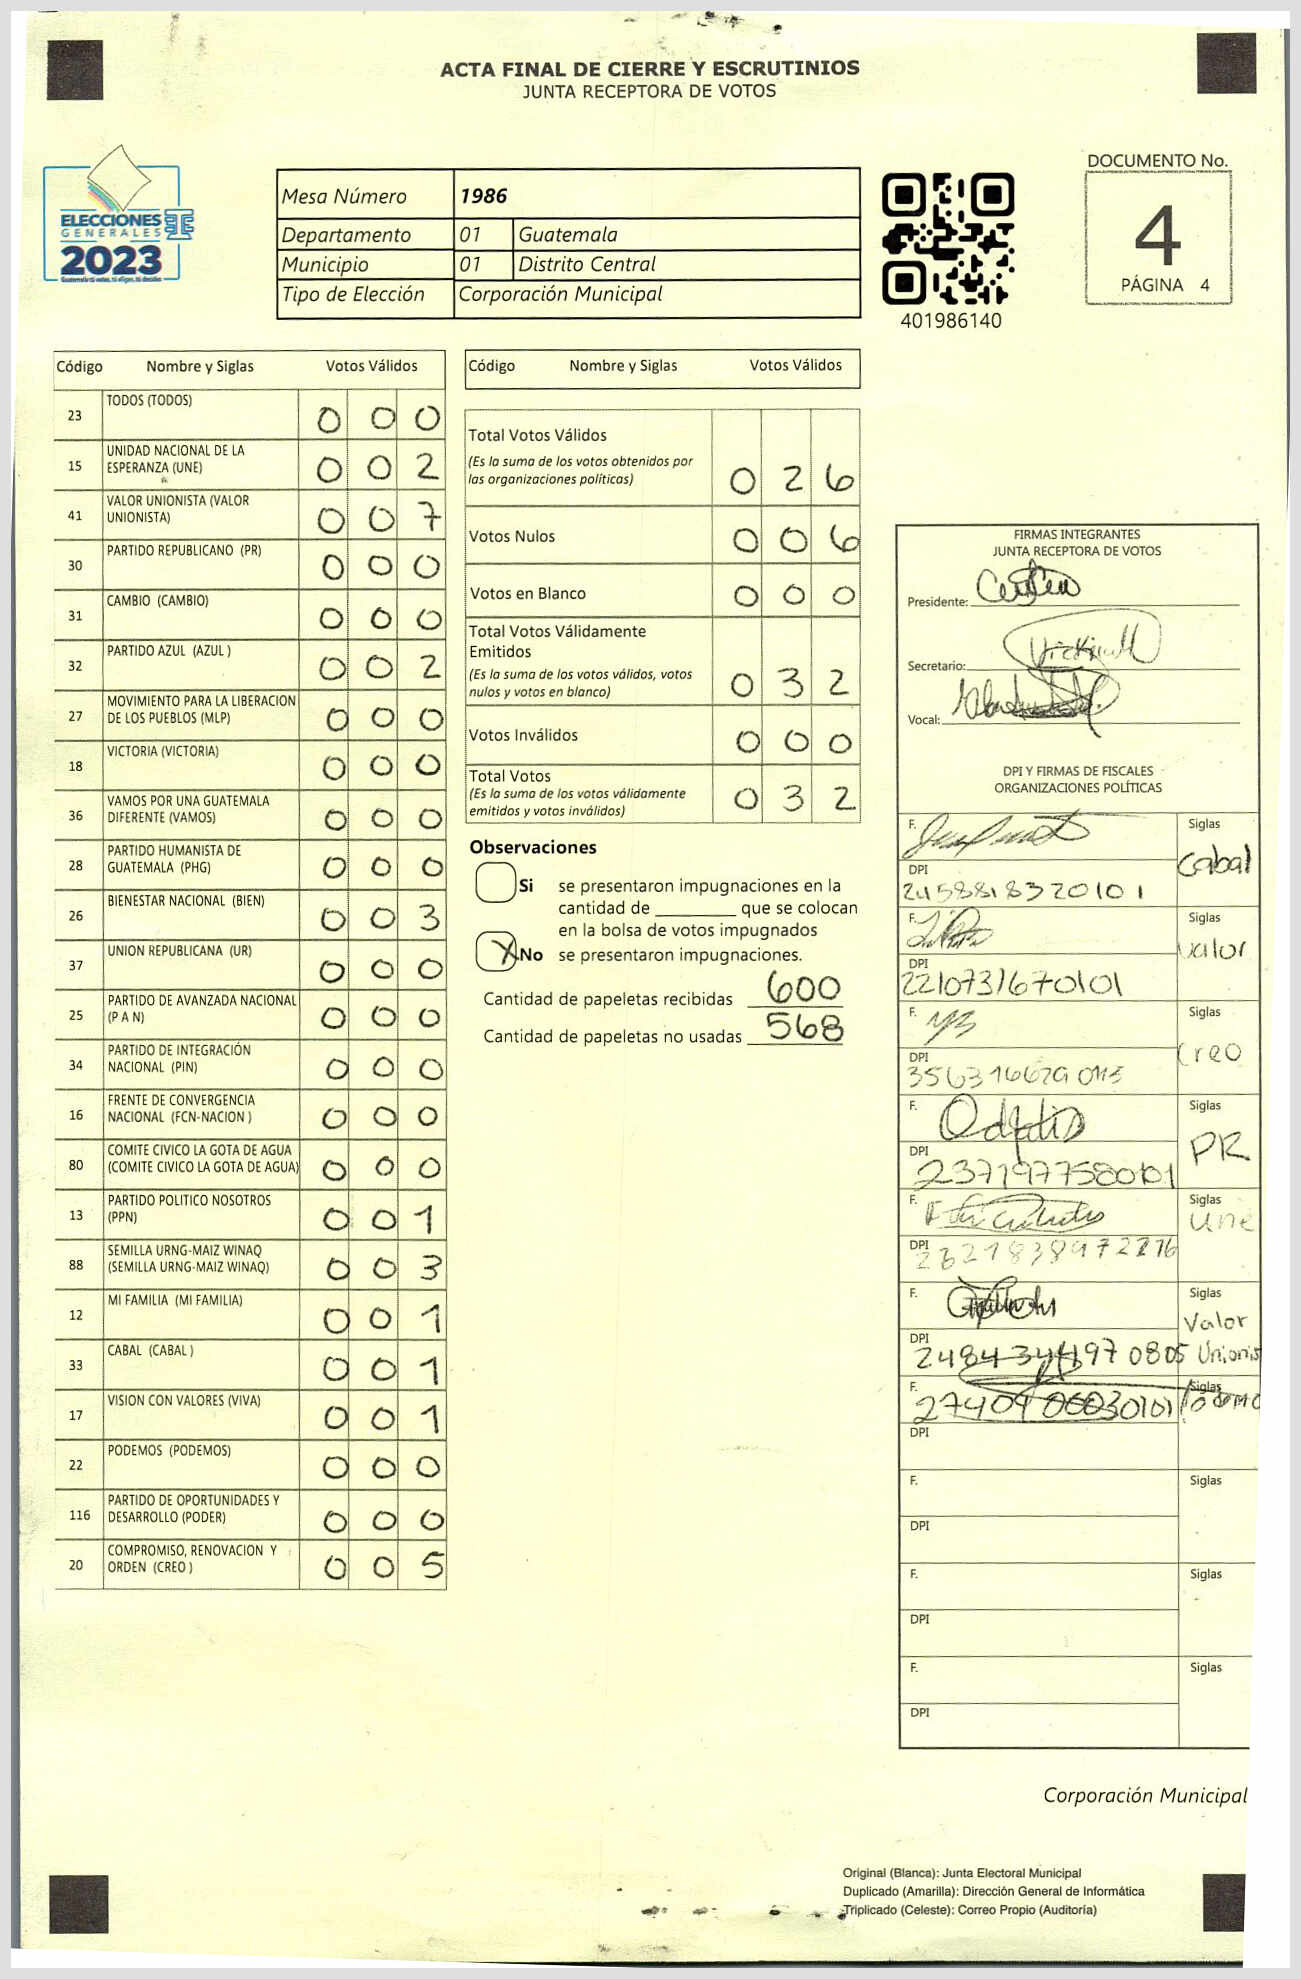 ACTA FINAL DE CIERRE Y ESCRUTINIOS
JUNTA RECEPTORA DE VOTOS
ELECCIONES
GENERALES
2023
Mesa Número 1986
Departamento 01 Guatemala
Municipio 01 Distrito Central
Tipo de Elección Corporación Municipal
401986140
DOCUMENTO No.
4
PÁGINA 4
Código Nombre y Siglas Votos Válidos
23 TODOS (TODOS) 0 0 0
15 UNIDAD NACIONAL DE LA
ESPERANZA (UNE) 0 0 2
41 VALOR UNIONISTA (VALOR
UNIONISTA) 0 0 7
30 PARTIDO REPUBLICANO (PR) 0 0 0
31 CAMBIO (CAMBIO) 0 0 0
32 PARTIDO AZUL (AZUL ) 0 0 2
27 MOVIMIENTO PARA LA LIBERACION
DE LOS PUEBLOS (MLP) 0 0 0
18 VICTORIA (VICTORIA) 0 0 0
36 VAMOS POR UNA GUATEMALA
DIFERENTE (VAMOS) 0 0 0
28 PARTIDO HUMANISTA DE
GUATEMALA (PHG) 0 0 0
26 BIENESTAR NACIONAL (BIEN) 0 0 3
37 UNION REPUBLICANA (UR) 0 0 0
25 PARTIDO DE AVANZADA NACIONAL
(P A N) 0 0 0
34 PARTIDO DE INTEGRACIÓN
NACIONAL (PIN) 0 0 0
16 FRENTE DE CONVERGENCIA
NACIONAL (FCN-NACION ) 0 0 0
80 COMITE CIVICO LA GOTA DE AGUA
(COMITE CIVICO LA GOTA DE AGUA) 0 0 0
13 PARTIDO POLITICO NOSOTROS
(PPN) 0 0 1
88 SEMILLA URNG-MAIZ WINAQ
(SEMILLA URNG-MAIZ WINAQ) 0 0 3
12 MI FAMILIA (MI FAMILIA) 0 0 1
33 CABAL (CABAL ) 0 0 1
17 VISION CON VALORES (VIVA) 0 0 1
22 PODEMOS (PODEMOS) 0 0 0
116 PARTIDO DE OPORTUNIDADES Y
DESARROLLO (PODER) 0 0 0
20 COMPROMISO, RENOVACION Y
ORDEN (CREO ) 0 0 5
Código Nombre y Siglas Votos Válidos
Total Votos Válidos
(Es la suma de los votos obtenidos por
las organizaciones políticas) 0 2 6
Votos Nulos 0 0 6
Votos en Blanco 0 0 0
Total Votos Válidamente
Emitidos
(Es la suma de los votos válidos, votos
nulos y votos en blanco) 0 3 2
Votos Inválidos 0 0 0
Total Votos
(Es la suma de los votos válidamente
emitidos y votos inválidos) 0 3 2
Observaciones
Si se presentaron impugnaciones en la
cantidad de ________ que se colocan
en la bolsa de votos impugnados
X No se presentaron impugnaciones.
Cantidad de papeletas recibidas 600
Cantidad de papeletas no usadas 568
FIRMAS INTEGRANTES
JUNTA RECEPTORA DE VOTOS
Presidente:
Secretario:
Vocal:
DPI Y FIRMAS DE FISCALES
ORGANIZACIONES POLÍTICAS
F. Siglas
Cabal
DPI
2458818320101
F. Siglas
Valor
DPI
2210731670101
F. Siglas
Creo
DPI
F. Siglas
PR
DPI
2371977580101
F. Siglas
une
DPI
F. Siglas
Valor
DPI
Unionis
F. Siglas
DPI
F. Siglas
DPI
F. Siglas
DPI
F. Siglas
DPI
Corporación Municipal
Original (Blanca): Junta Electoral Municipal
Duplicado (Amarilla): Dirección General de Informática
Triplicado (Celeste): Correo Propio (Auditoría)